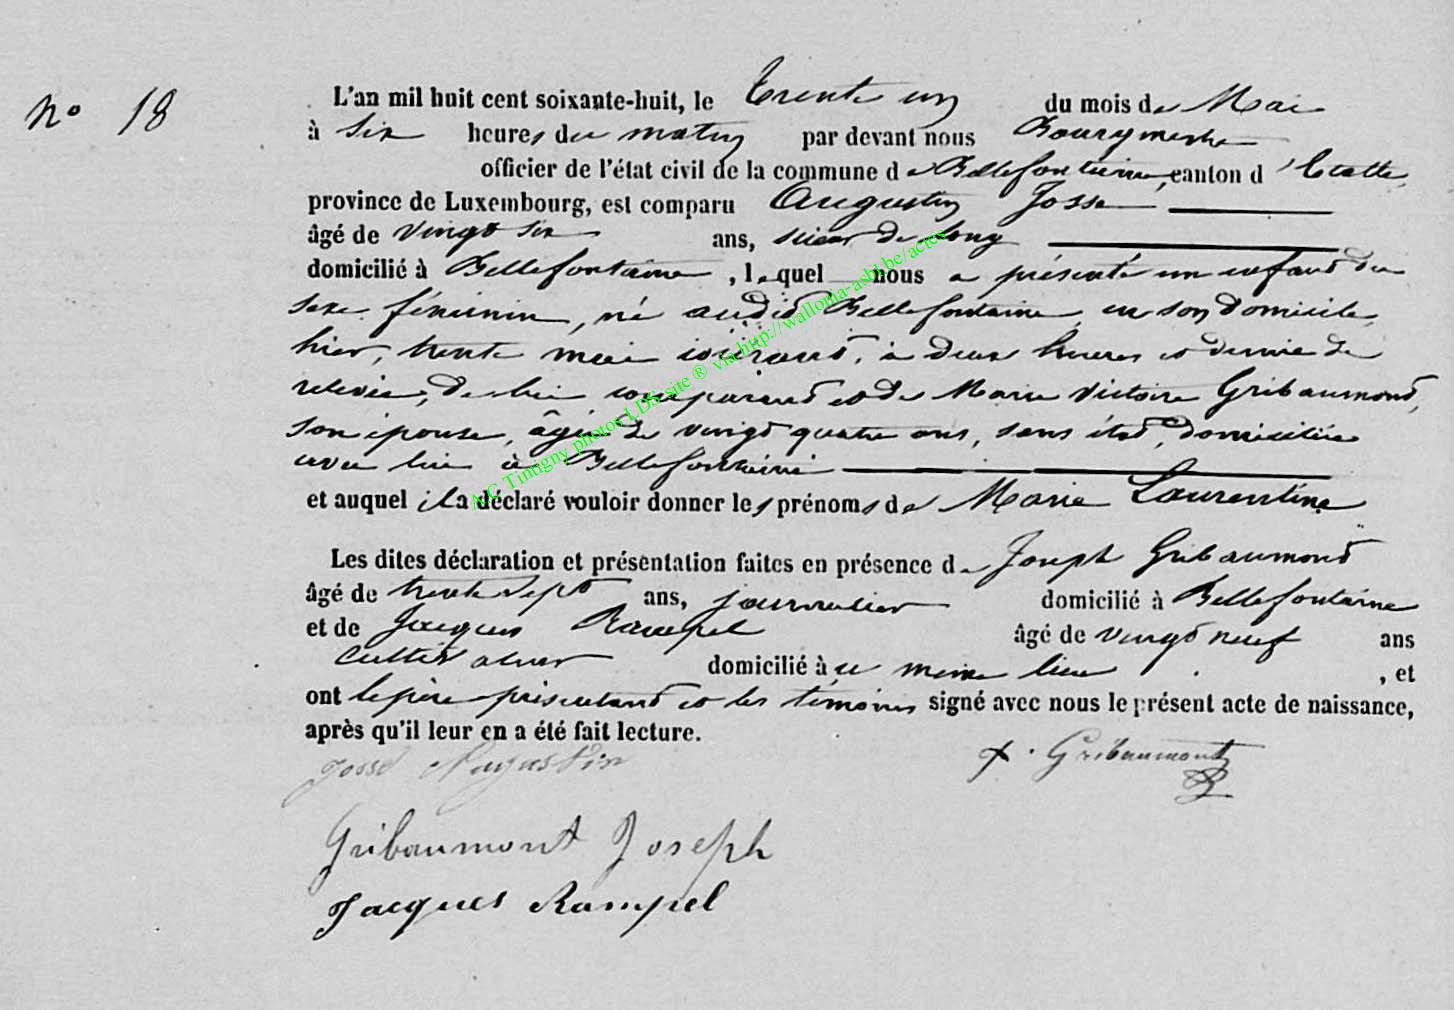 N° 18
L'an mil huit cent soixante-huit, le trente un du mois de Mai
à six heures du matin par devant nous Bourgmestre
officier de l'état civil de la commune de Bellefontaine, canton d'Etalle
province de Luxembourg, est comparu Augustin Josse
âgé de vingt six ans, scieur de long
domicilié à Bellefontaine, lequel nous a présenté un enfant du
sexe féminin, né audit Bellefontaine, en son domicile,
hier, trente mai courant, à deux heures et demie de
relevée, de lui comparant et de Marie Victoire Gribaumond,
son épouse, âgée de vingt quatre ans, sans état, domiciliée
avec lui à Bellefontaine
et auquel il a déclaré vouloir donner les prénoms de Marie Laurentine
Les dites déclaration et présentation faites en présence de Joseph Gribaumond
âgé de trente sept ans, journalier domicilié à Bellefontaine
et de Jacques Rampel âgé de vingt neuf ans
cultivateur domicilié à ce même lieu, et
ont le père présentant et les témoins signé avec nous le présent acte de naissance,
après qu'il leur en a été fait lecture.
Josse Augustin
Gribaumont
Gribaumont Joseph
Jacques Rampel
AC Tintigny photos LDS site ® via http://wallonia-asbl.be/actes